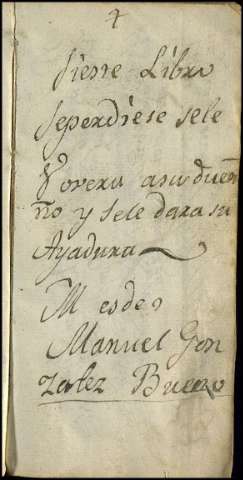 4
Sieste Libro
Seperdiese sele
Bovera asu dueñ
ño y sele dara su
Ayadura
M esdes
Manuel Gon
zalez Bueno